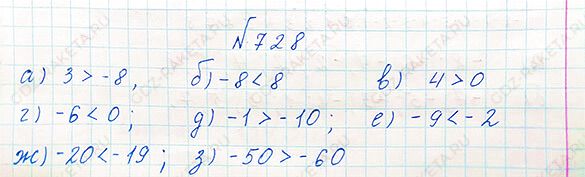 №728
а) 3 > -8, б) -8 < 8 в) 4 > 0
г) -6 < 0; д) -1 > -10; е) -9 < -2
ж) -20 < -19; з) -50 > -60